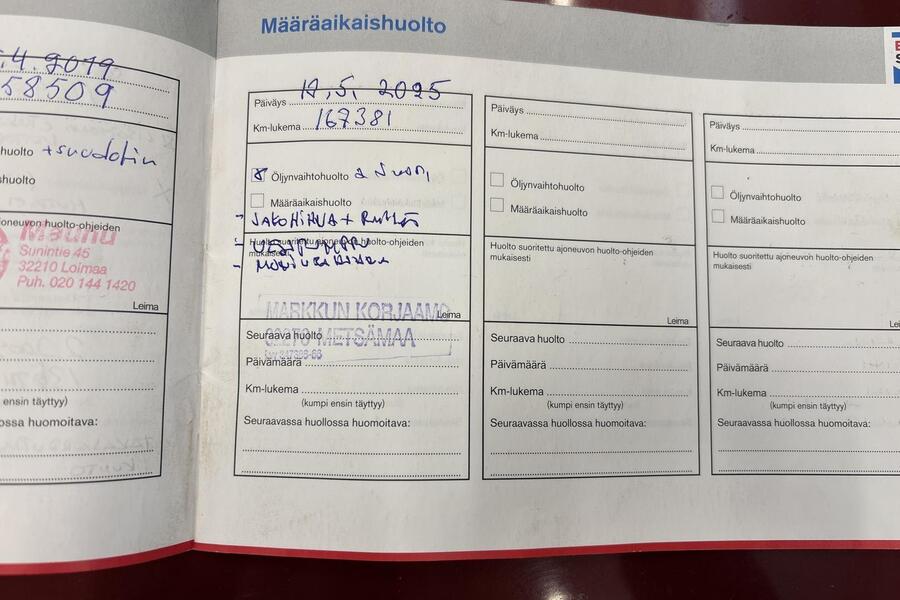 Määräaikaishuolto
.4.2019
58509
huolto + suodatin
shuolto
joneuvon huolto-ohjeiden
Maunu
Sunintie 45
32210 Loimaa
Puh. 020 144 1420
Leima
ensin täyttyy)
ollossa huomoitava:
Päiväys 12.5. 2025
Km-lukema 167381
Öljynvaihtohuolto
Määräaikaishuolto
- JAKOHIHNA +
Huolto suoritettu ajoneuvon huolto-ohjeiden
mukaisesti
- VESIPUMPPU
MARKKUN KORJAAMO
Leima
METSÄMAA
Seuraava huolto
Päivämäärä
Km-lukema
(kumpi ensin täyttyy)
Seuraavassa huollossa huomoitava:
Päiväys
Km-lukema
Öljynvaihtohuolto
Määräaikaishuolto
Huolto suoritettu ajoneuvon huolto-ohjeiden
mukaisesti
Leima
Seuraava huolto
Päivämäärä
Km-lukema
(kumpi ensin täyttyy)
Seuraavassa huollossa huomoitava:
Päiväys
Km-lukema
Öljynvaihtohuolto
Määräaikaishuolto
Huolto suoritettu ajoneuvon huolto-ohjeiden
mukaisesti
Lei
Seuraava huolto
Päivämäärä
Km-lukema
(kumpi ensin täyttyy)
Seuraavassa huollossa huomoitava: